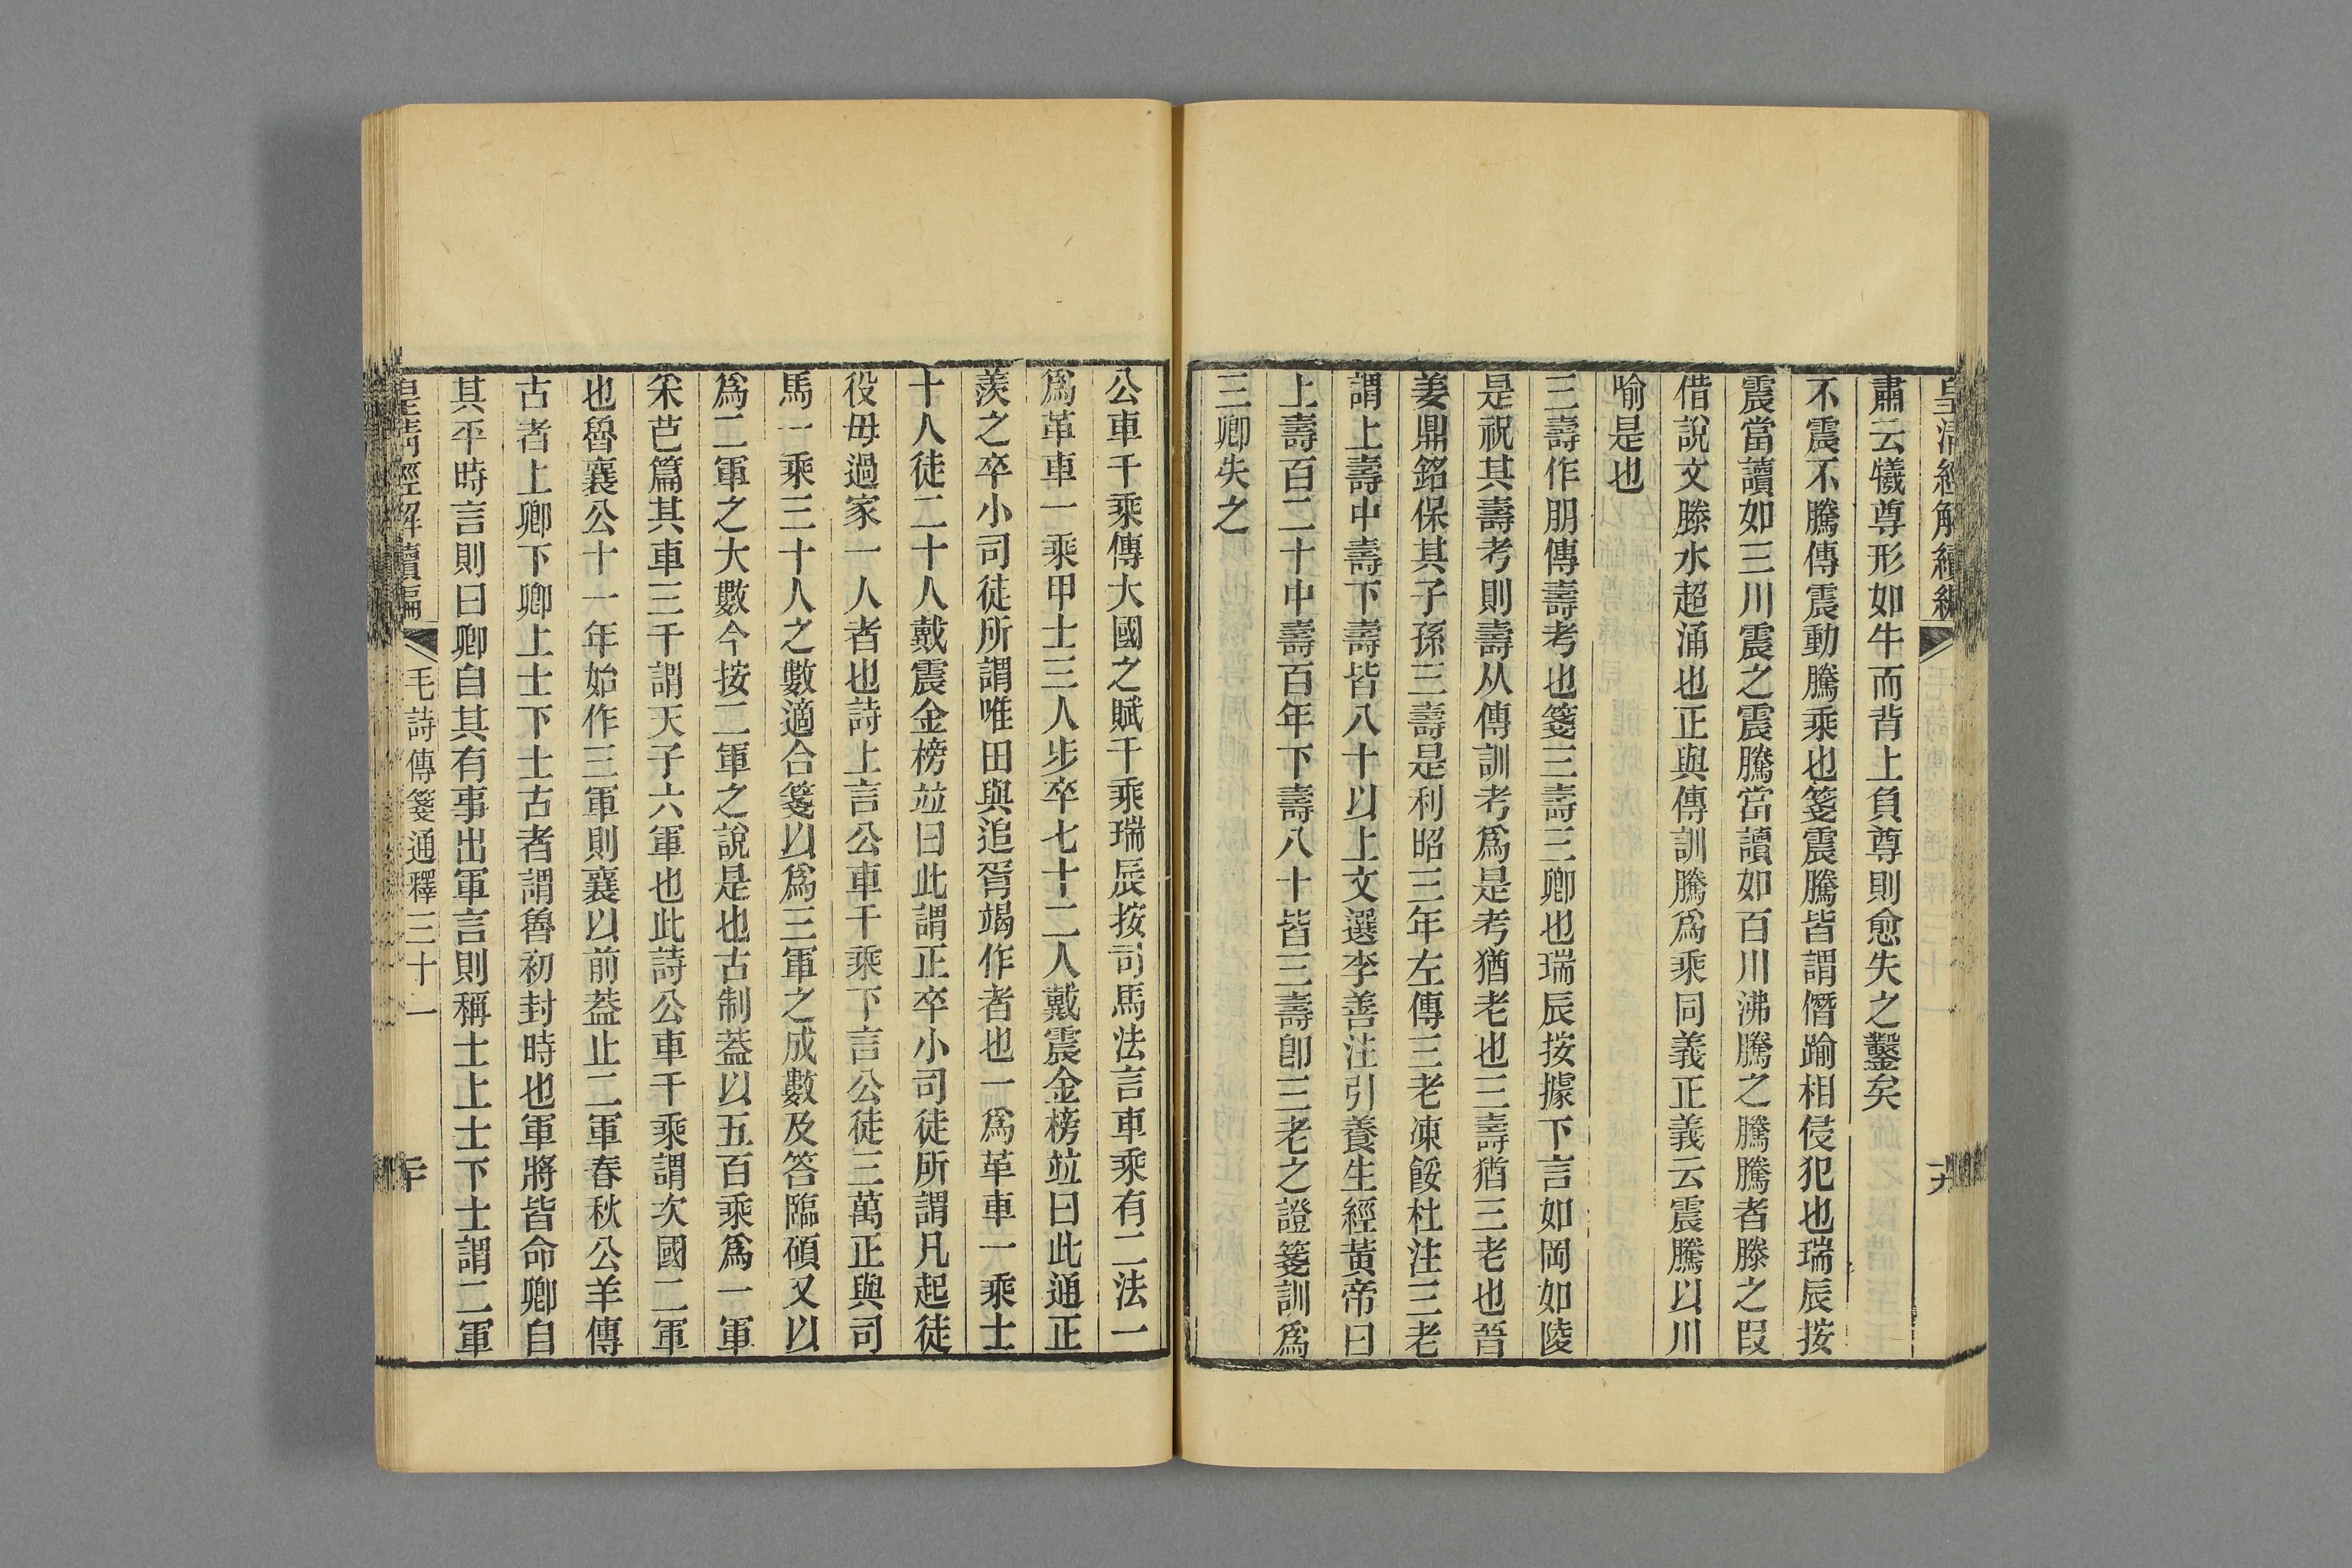 皇清經解續編
肅云犧尊形如牛而背上負尊則愈失之鑿矣
不震不騰傳震動騰乘也箋震騰皆謂僭踰相侵犯也瑞辰按
震當讀如三川震之震騰當讀如百川沸騰之騰騰者滕之叚
借說文滕水超涌也正與傳訓騰爲乘同義正義云震騰以川
喻是也
三壽作朋傳壽考也箋三壽三卿也瑞辰按據下言如岡如陵
是祝其壽考則壽从傳訓考爲是考猶老也三壽猶三老也晉
姜鼎銘保其子孫三壽是利昭三年左傳三老凍餒杜注三老
謂上壽中壽下壽皆八十以上文選李善注引養生經黃帝曰
上壽百二十中壽百年下壽八十皆三壽卽三老之證箋訓爲
三卿失之
公車千乘傳大國之賦千乘瑞辰按司馬法言車乘有二法一
爲革車一乘甲士三人步卒七十二人戴震金榜竝曰此通正
羨之卒小司徒所謂唯田與追胥竭作者也一爲革車一乘士
十人徒二十人戴震金榜竝曰此謂正卒小司徒所謂凡起徒
役毋過家一人者也詩上言公車千乘下言公徒三萬正與司
馬一乘三十人之數適合箋以爲三軍之成數及答臨碩又以
爲二軍之大數今按二軍之說是也古制葢以五百乘爲一軍
采芑篇其車三千謂天子六軍也此詩公車千乘謂次國二軍
也魯襄公十一年始作三軍則襄以前葢止二軍春秋公羊傳
古者上卿下卿上士下士古者謂魯初封時也軍將皆命卿自
其平時言則曰卿自其有事出軍言則稱士上士下士謂二軍
皇清經解續編 毛詩傳箋通釋三十一 二十